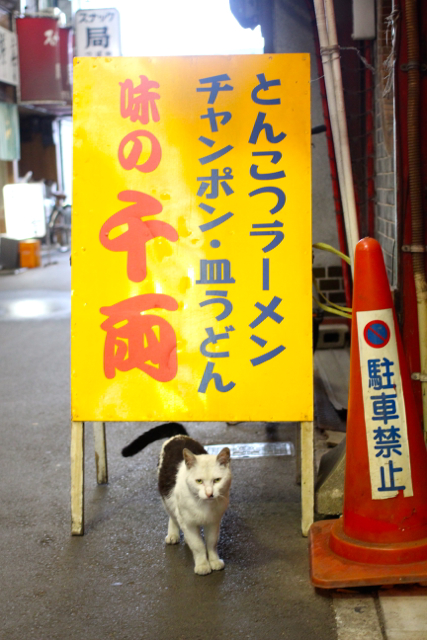 スナック
局
とんこつラーメン
チャンポン・皿うどん
味の千両
駐車禁止